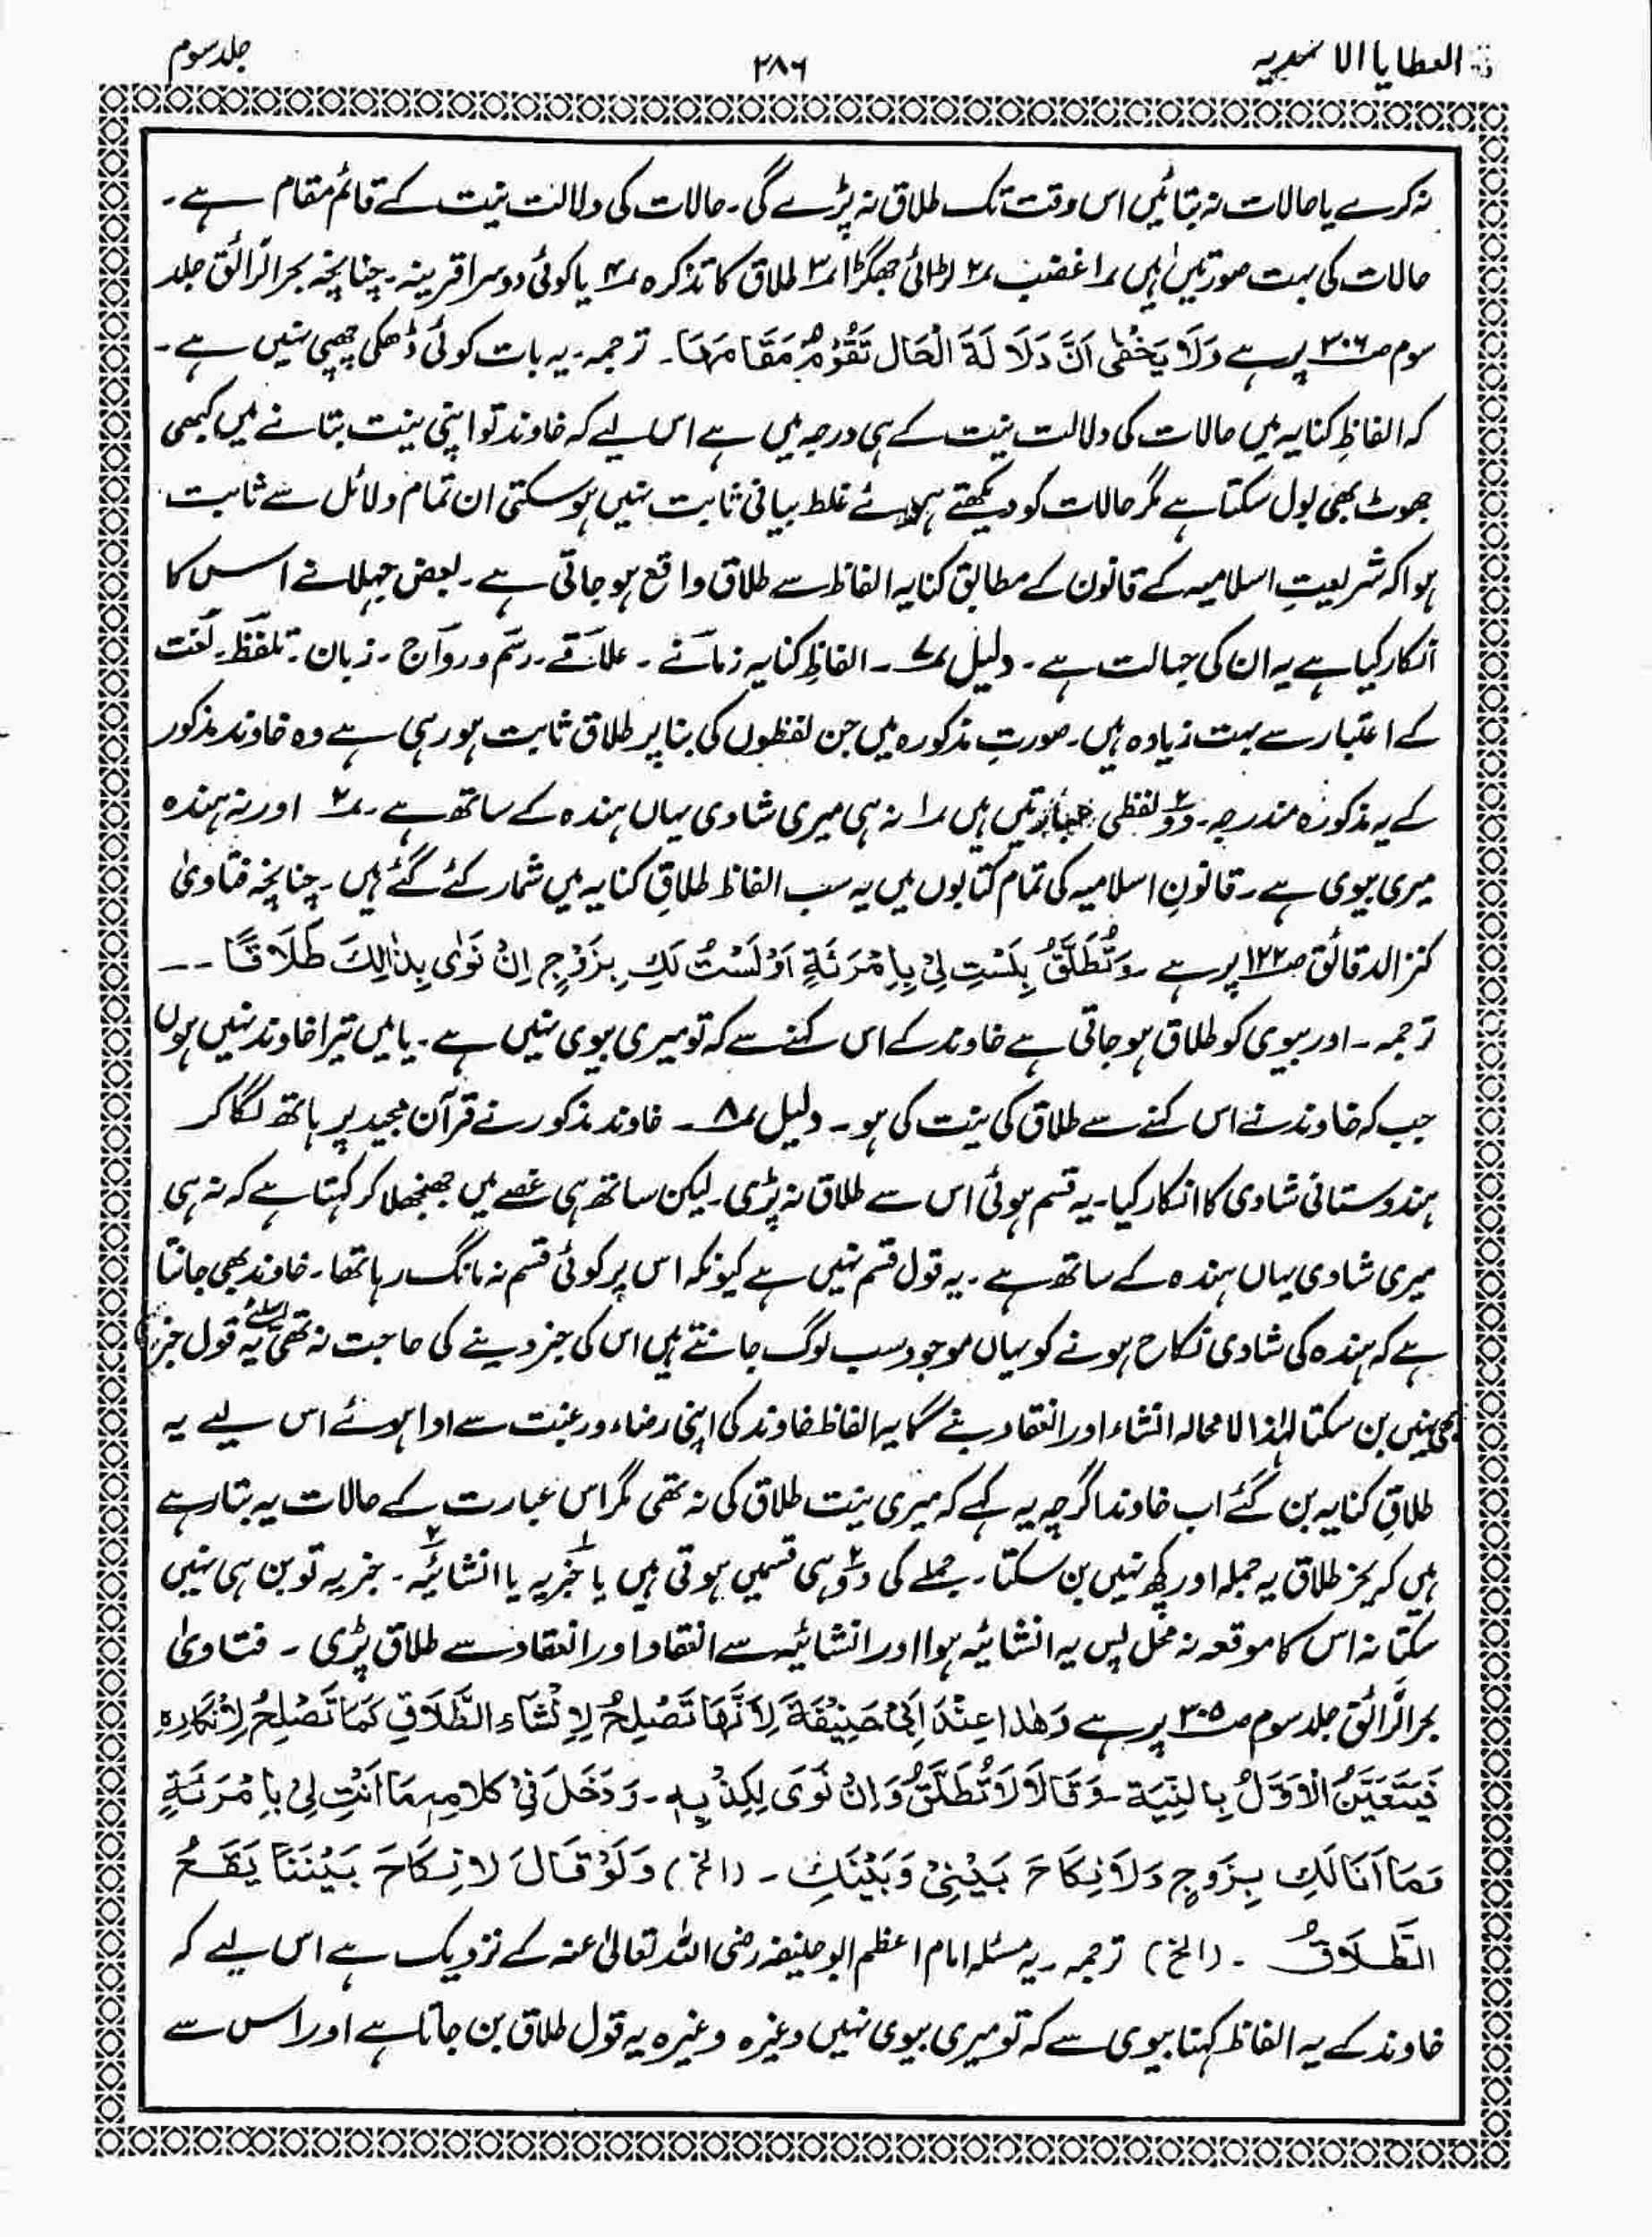 العطایا الاحمدیہ ۲۸۶ جلد سوم
نہ کرے یا حالات نہ بتائیں اس وقت تک طلاق نہ پڑے گی۔ حالات کی دلالت نیت کے قائم مقام ہے۔
حالات کی بہت صورتیں ہیں ۱؎ غضب ۲؎ لڑائی جھگڑا ۳؎ طلاق کا تذکرہ ۴؎ یا کوئی دوسرا قرینہ۔ چنانچہ بحر الرائق جلد
سوم صـ۳۰۶ پر ہے وَلَا يَخْفٰى اَنَّ دَلَا لَةَ الْحَال تَقُوْمُ مَقَا مَهَا۔ ترجمہ۔ یہ بات کوئی ڈھکی چھپی نہیں ہے۔
کہ الفاظِ کنایہ میں حالات کی دلالت نیت کے ہی درجہ میں ہے اس لیے کہ خاوند تو اپنی نیت بتانے میں کبھی
جھوٹ بھی بول سکتا ہے مگر حالات کو دیکھتے ہوئے غلط بیانی ثابت نہیں ہو سکتی ان تمام دلائل سے ثابت
ہوا کہ شریعتِ اسلامیہ کے قانون کے مطابق کنایہ الفاظ سے طلاق واقع ہو جاتی ہے۔ بعض جہلا نے اس کا
انکار کیا ہے یہ ان کی جہالت ہے۔ دلیل ۷؎۔ الفاظِ کنایہ زمانے۔ علاقے۔ رسم و رواج۔ زبان۔ تلفظ۔ لغت
کے اعتبار سے بہت زیادہ ہیں۔ صورتِ مذکورہ میں جن لفظوں کی بنا پر طلاق ثابت ہو رہی ہے وہ خاوند مذکور
کے یہ مذکورہ مندرجہ۔ دو۲ لفظی عبارتیں ہیں ۱؎ نہ ہی میری شادی یہاں ہندہ کے ساتھ ہے۔ ۲؎ اور نہ ہندہ
میری بیوی ہے۔ قانونِ اسلامیہ کی تمام کتابوں میں یہ سب الفاظ طلاقِ کنایہ میں شمار کئے گئے ہیں۔ چنانچہ فتاویٰ
کنز الدقائق صـ۱۲۲ پر ہے۔ وَتُطَلَّقُ بِلَسْتِ لِىْ بِاِمْرَئَةٍ اَوْ لَسْتُ لَكِ بِزَوْجٍ اِنْ نَوٰى بِذٰالِكَ طَلَاقًا۔۔
ترجمہ۔ اور بیوی کو طلاق ہو جاتی ہے خاوند کے اس کہنے سے کہ تو میری بیوی نہیں ہے۔ یا میں تیرا خاوند نہیں ہوں
جب کہ خاوند نے اس کہنے سے طلاق کی نیت کی ہو۔ دلیل ۸؎۔ خاوند مذکور نے قرآن مجید پر ہاتھ لگا کر
ہندوستانی شادی کا انکار کیا۔ یہ قسم ہوئی اس سے طلاق نہ پڑی۔ لیکن ساتھ ہی غصے میں جھنجھلا کر کہتا ہے کہ نہ ہی
میری شادی یہاں ہندہ کے ساتھ ہے۔ یہ قول قسم نہیں ہے کیونکہ اس پر کوئی قسم نہ مانگ رہا تھا۔ خاوند بھی جانتا
ہے کہ ہندہ کی شادی نکاح ہونے کو یہاں موجود سب لوگ جانتے ہیں اس کی خبر دینے کی حاجت نہ تھی اسلئے یہ قول خبر
بھی نہیں بن سکتا لہٰذا لا محالہ انشاء اور انعقاد بنے گا یہ الفاظ خاوند کی اپنی رضاء و رغبت سے ادا ہوئے اس لیے یہ
طلاقِ کنایہ بن گئے اب خاوند اگرچہ یہ کہے کہ میری نیت طلاق کی نہ تھی مگر اس عبارت کے حالات یہ بتا رہے
ہیں کہ بجز طلاق یہ جملہ اور کچھ نہیں بن سکتا۔ جملے کی دو۲ ہی قسمیں ہوتی ہیں یا خبریہ۱ یا انشائیہ۲۔ خبریہ تو بن ہی نہیں
سکتا نہ اس کا موقعہ نہ محل پس یہ انشائیہ ہوا اور انشائیہ سے انعقاد اور انعقاد سے طلاق پڑی۔ فتاویٰ
بحر الرائق جلد سوم صـ۳۰۵ پر ہے وَهٰذا عِنْدَ اَبِىْ حَنِيْفَةَ لِاَنَّهَا تَصْلِحُ لِاِنْشَاءِ الطَّلَاقِ كَمَا تَصْلِحُ لِاِنْكَارِهِ
فَيَتَعَيَّنُ الْاَوَّلُ بِالنِّيَةِ۔ وَقَالَا لَا تُطَلَّقُ وَاِنْ نَوَى لِكِذْبِهٖ۔ وَدَخَلَ فِىْ كلامِهِ مَا اَنْتِ لِىْ بِاِ مْرَئَةٍ
وَمَا اَنَا لَكِ بِزَوجٍ وَلَا نِكَاحَ بَيْنِىْ وَبَيْنَكِ۔ (الخ) وَلَوْ قَالَ لا نِكَاحَ بَيْنَنَا يَقَعُ
الطَّلَاقُ۔ (الخ) ترجمہ۔ یہ مسئلہ امام اعظم ابو حنیفہ رضی اللہ تعالیٰ عنہ کے نزدیک ہے اس لیے کہ
خاوند کے یہ الفاظ کہنا بیوی سے کہ تو میری بیوی نہیں وغیرہ وغیرہ یہ قول طلاق بن جاتا ہے اور اس سے